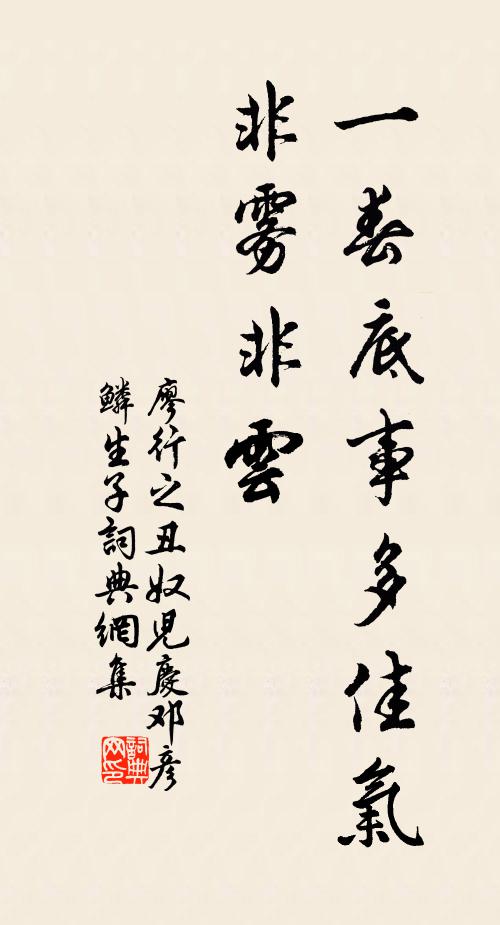 一春底事多佳氣
非雾非雲
廖行之丑奴児慶邓彦
鱗生子詞典網集
詞典网印